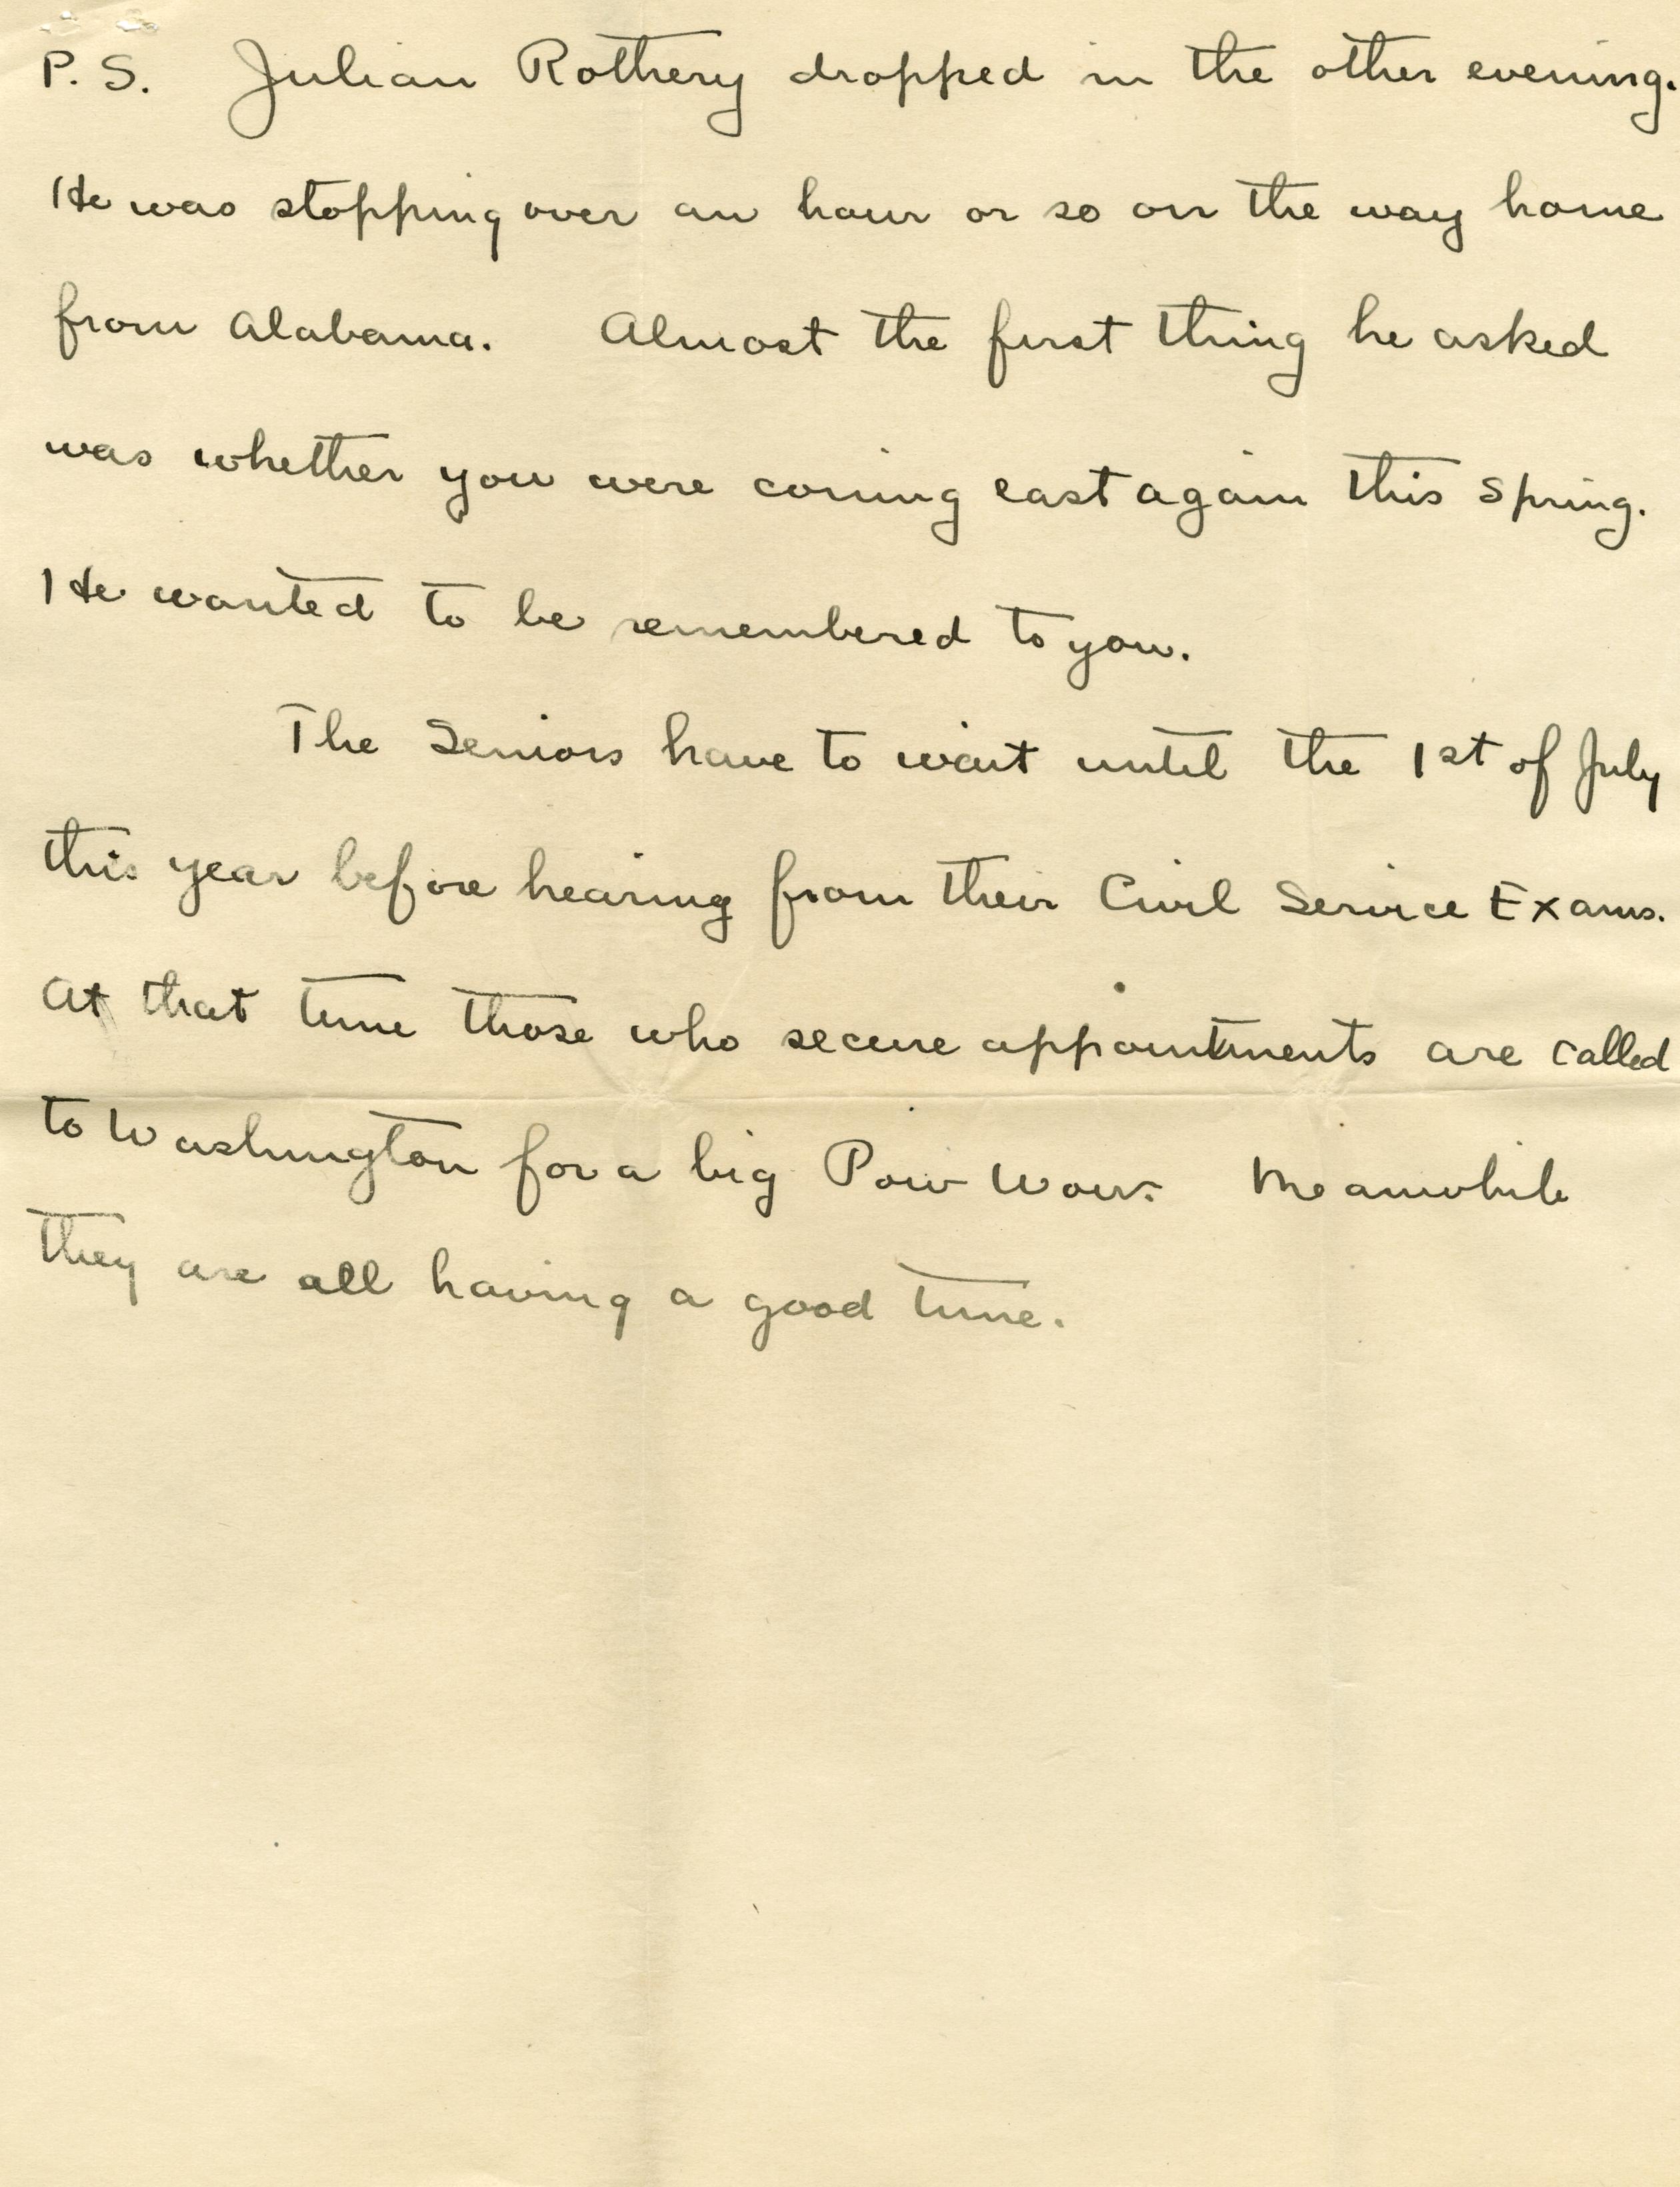 P. S. Julian Rothery dropped in the other evening.
He was stopping over an hour or so on the way home
from Alabama. Almost the first thing he asked
was whether you were coming east again this Spring.
He wanted to be remembered to you.
The Seniors have to wait until the 1st of July
this year before hearing from their Civil Service Exams.
At that time those who secure appointments are called
to Washington for a big Pow Wow. Meanwhile
they are all having a good time.